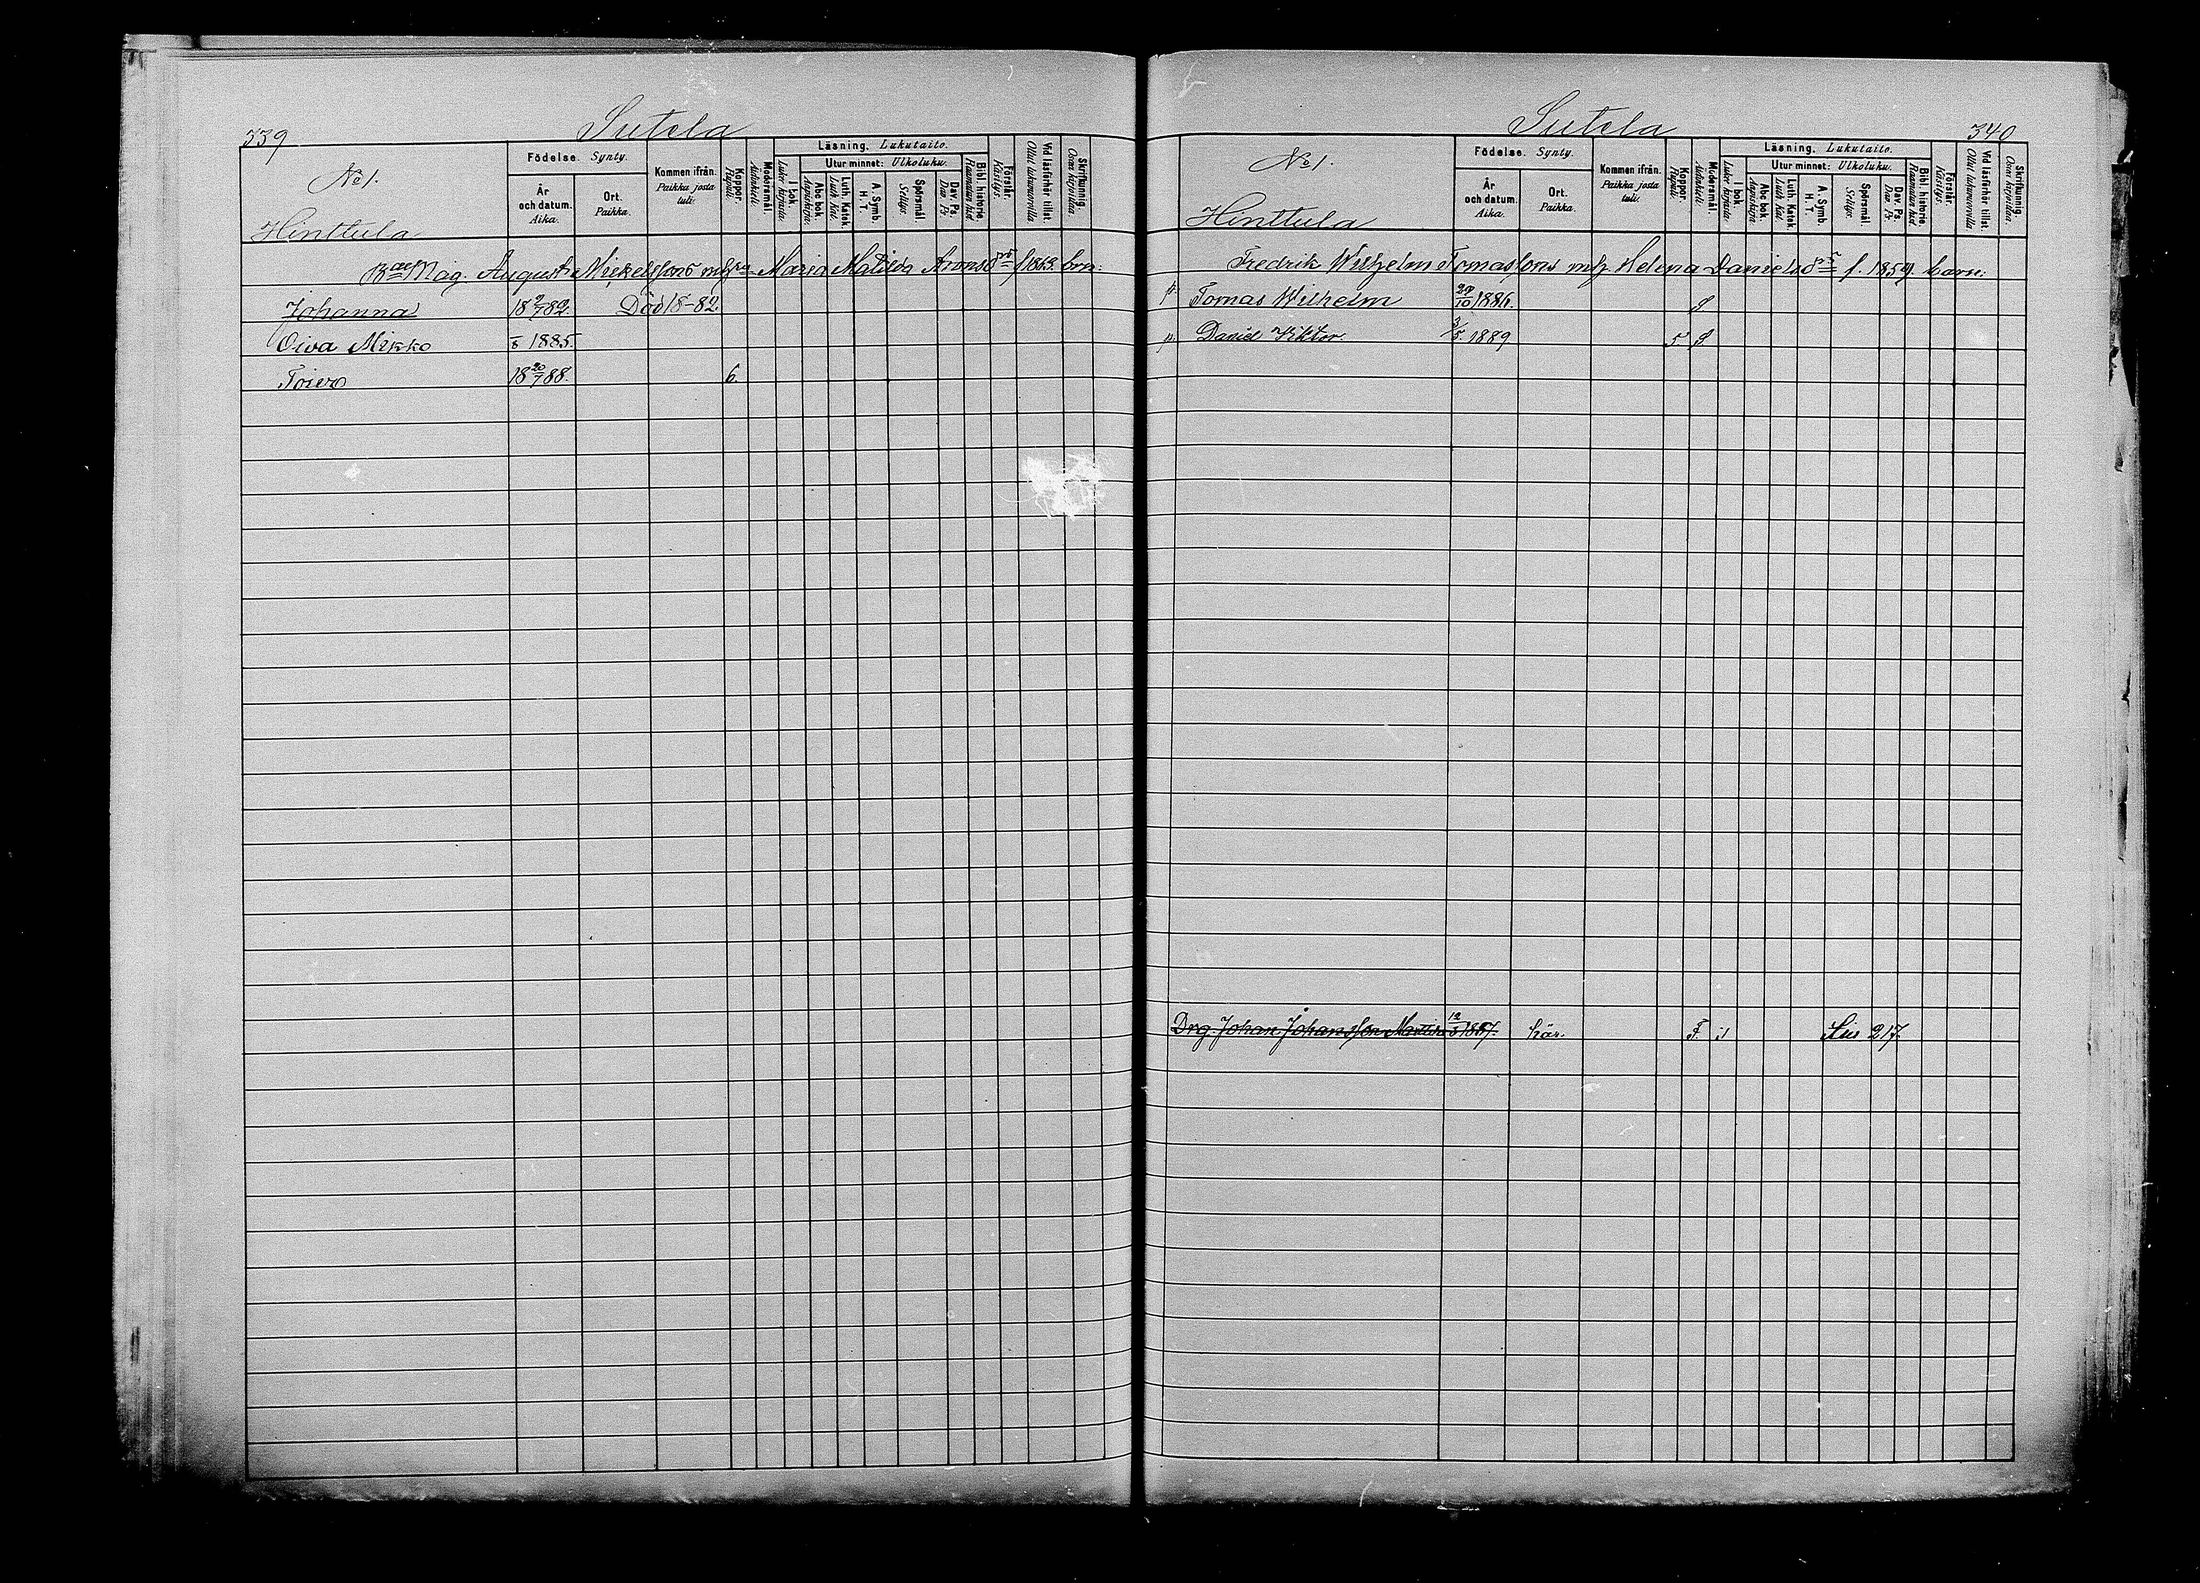 339
Sutela
No 1.
Hinttula
Födelse. Synty.
År och datum. Aika.
Ort. Paikka.
Kommen ifrån. Paikka josta tuli.
Koppor. Rupuli.
Modersmål. Äidinkieli.
Läsning. Lukutaito.
I bok. Lukee kirjasta.
Utur minnet: Ulkoluku.
Abc bok. Aapiskirja.
Luth. Katek. Luth. Kat.
A. Symb. H. T.
Spörsmål. Selitys.
Dav. Ps. Dav. Ps.
Bibl. historie. Raamatun hist.
Förstår. Käsitys.
Vid läsförhör tillst. Ollut lukukunnilla
Skriftkunnig. Osaa kirjoittaa.
Mag. August Mickelssons m hu Maria Matilda Aronsdr f. 1863. brn:
Johanna 18 2/7 82. Död 18 -82.
Oiva Mikko 1885
Toivo 18 20/7 88. 6.
Sutela
340
No 1.
Hinttula
Födelse. Synty.
År och datum. Aika.
Ort. Paikka.
Kommen ifrån. Paikka josta tuli.
Koppor. Rupuli.
Modersmål. Äidinkieli.
Läsning. Lukutaito.
I bok. Lukee kirjasta.
Utur minnet: Ulkoluku.
Abc bok. Aapiskirja.
Luth. Katek. Luth. Kat.
A. Symb. H. T.
Spörsmål. Selitys.
Dav. Ps. Dav. Ps.
Bibl. historie. Raamatun hist.
Förstår. Käsitys.
Vid läsförhör tillst. Ollut lukukunnilla
Skriftkunnig. Osaa kirjoittaa.
Fredrik Wilhelm Tomassons m h Helena Danielsdr f. 1859. barn:
p. Tomas Wilhelm /10 1886.
p. Daniel Viktor. 3/5 1889 5
Drg. Johan Johansson 12/ här. F. 217.